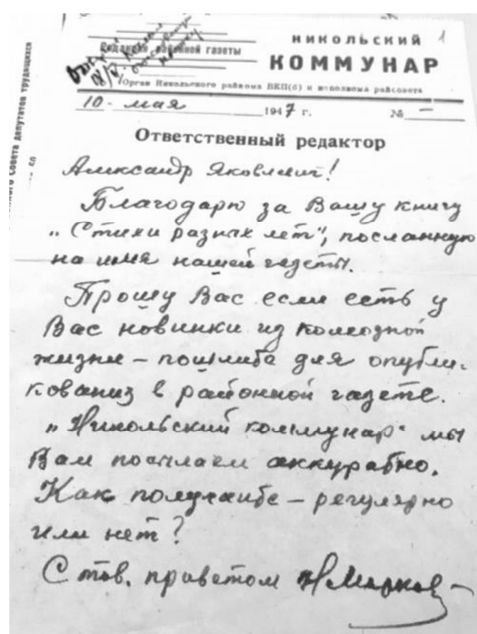 Редакция районной газеты
НИКОЛЬСКИЙ
КОММУНАР
Орган Никольского райкома ВКП(б) и исполкома райсовета
10 - мая 1947 г. № —
Ответственный редактор
Александр Яковлевич!
Благодарю за Вашу книгу
„Стихи разных лет“, посланную
на имя нашей газеты.
Прошу Вас если есть у
Вас новинки из колхозной
жизни – пошлите для опубли-
кования в районной газете.
„Никольский коммунар“ мы
Вам посылаем аккуратно.
Как получаете – регулярно
или нет?
С тов. приветом НМарков
1
Совета депутатов трудящихся